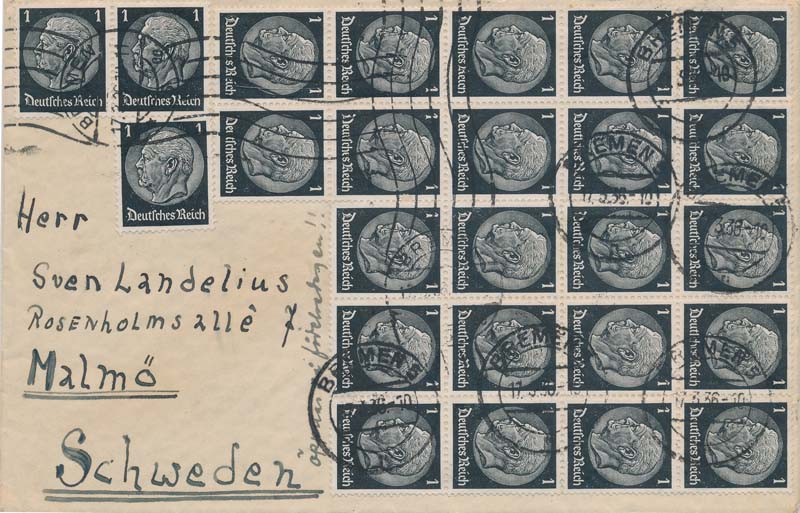 1 1
Deutsches Reich Deutsches Reich
1
Deutsches Reich
Deutsches Reich 1 Deutsches Reich 1 Deutsches Reich 1 Deutsches Reich 1 Deutsches Reich 1
Deutsches Reich 1 Deutsches Reich 1 Deutsches Reich 1 Deutsches Reich 1 Deutsches Reich 1
Deutsches Reich 1 Deutsches Reich 1 Deutsches Reich 1 Deutsches Reich 1
Deutsches Reich 1 Deutsches Reich 1 Deutsches Reich 1 Deutsches Reich 1
Deutsches Reich 1 Deutsches Reich 1 Deutsches Reich 1 Deutsches Reich 1
BREMEN 5
17.3.36.-10
BREMEN 5
17.3.36.-10
BREMEN 5
Herr
Sven Landelius
Rosenholms allé 7
Malmö
Schweden